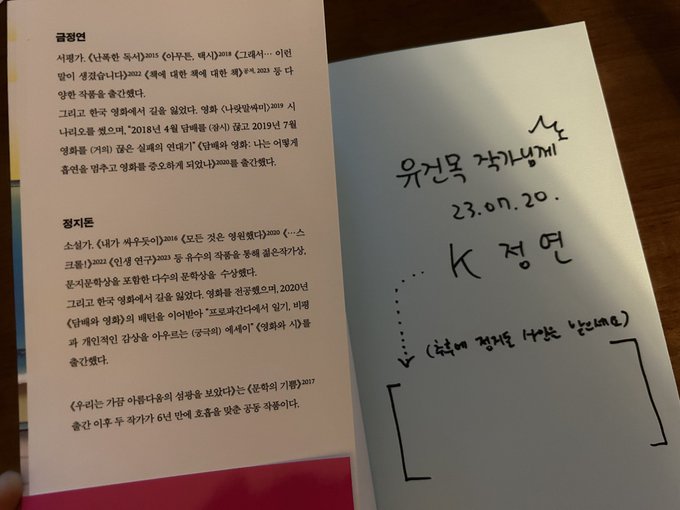 금정연
서평가. 《난폭한 독서》2015 《아무튼, 택시》2018 《그래서… 이런
말이 생겼습니다》2022 《책에 대한 책에 대한 책》공저, 2023 등 다
양한 작품을 출간했다.
그리고 한국 영화에서 길을 잃었다. 영화 〈나랏말싸미〉2019 시
나리오를 썼으며, “2018년 4월 담배를 (잠시) 끊고 2019년 7월
영화를 (거의) 끊은 실패의 연대기” 《담배와 영화: 나는 어떻게
흡연을 멈추고 영화를 증오하게 되었나》2020를 출간했다.
정지돈
소설가. 《내가 싸우듯이》2016 《모든 것은 영원했다》2020 《…스
크롤!》2022 《인생 연구》2023 등 유수의 작품을 통해 젊은작가상,
문지문학상을 포함한 다수의 문학상을 수상했다.
그리고 한국 영화에서 길을 잃었다. 영화를 전공했으며, 2020년
《담배와 영화》의 배턴을 이어받아 “프로파간다에서 일기, 비평
과 개인적인 감상을 아우르는 (궁극의) 에세이” 《영화와 시》를
출간했다.
《우리는 가끔 아름다움의 섬광을 보았다》는 《문학의 기쁨》2017
출간 이후 두 작가가 6년 만에 호흡을 맞춘 공동 작품이다.
유건목 작가님께
23.07.20.
K 정연
(추후에 정지돈 사인은 받으세요)